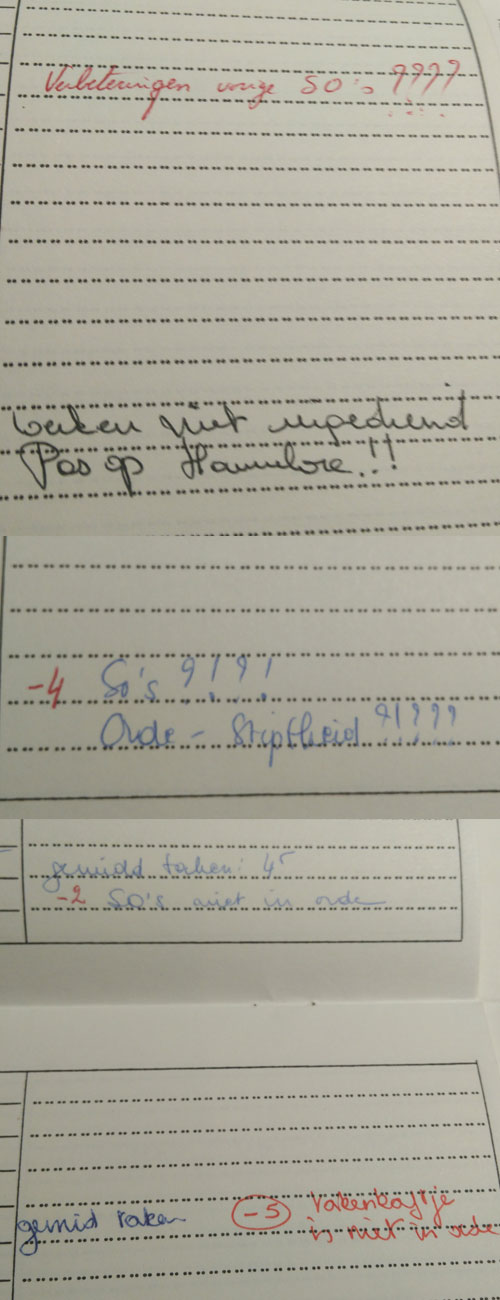 Verbeteringen vorige SO's ????
taken niet ingediend
Pas op Hannelore!!
-4 So's ?!?!
Orde - Stiptheid ?!???
gemidd taken: 45
-2 SO's niet in orde
gemid taken -5 takenkaftje
is niet in orde